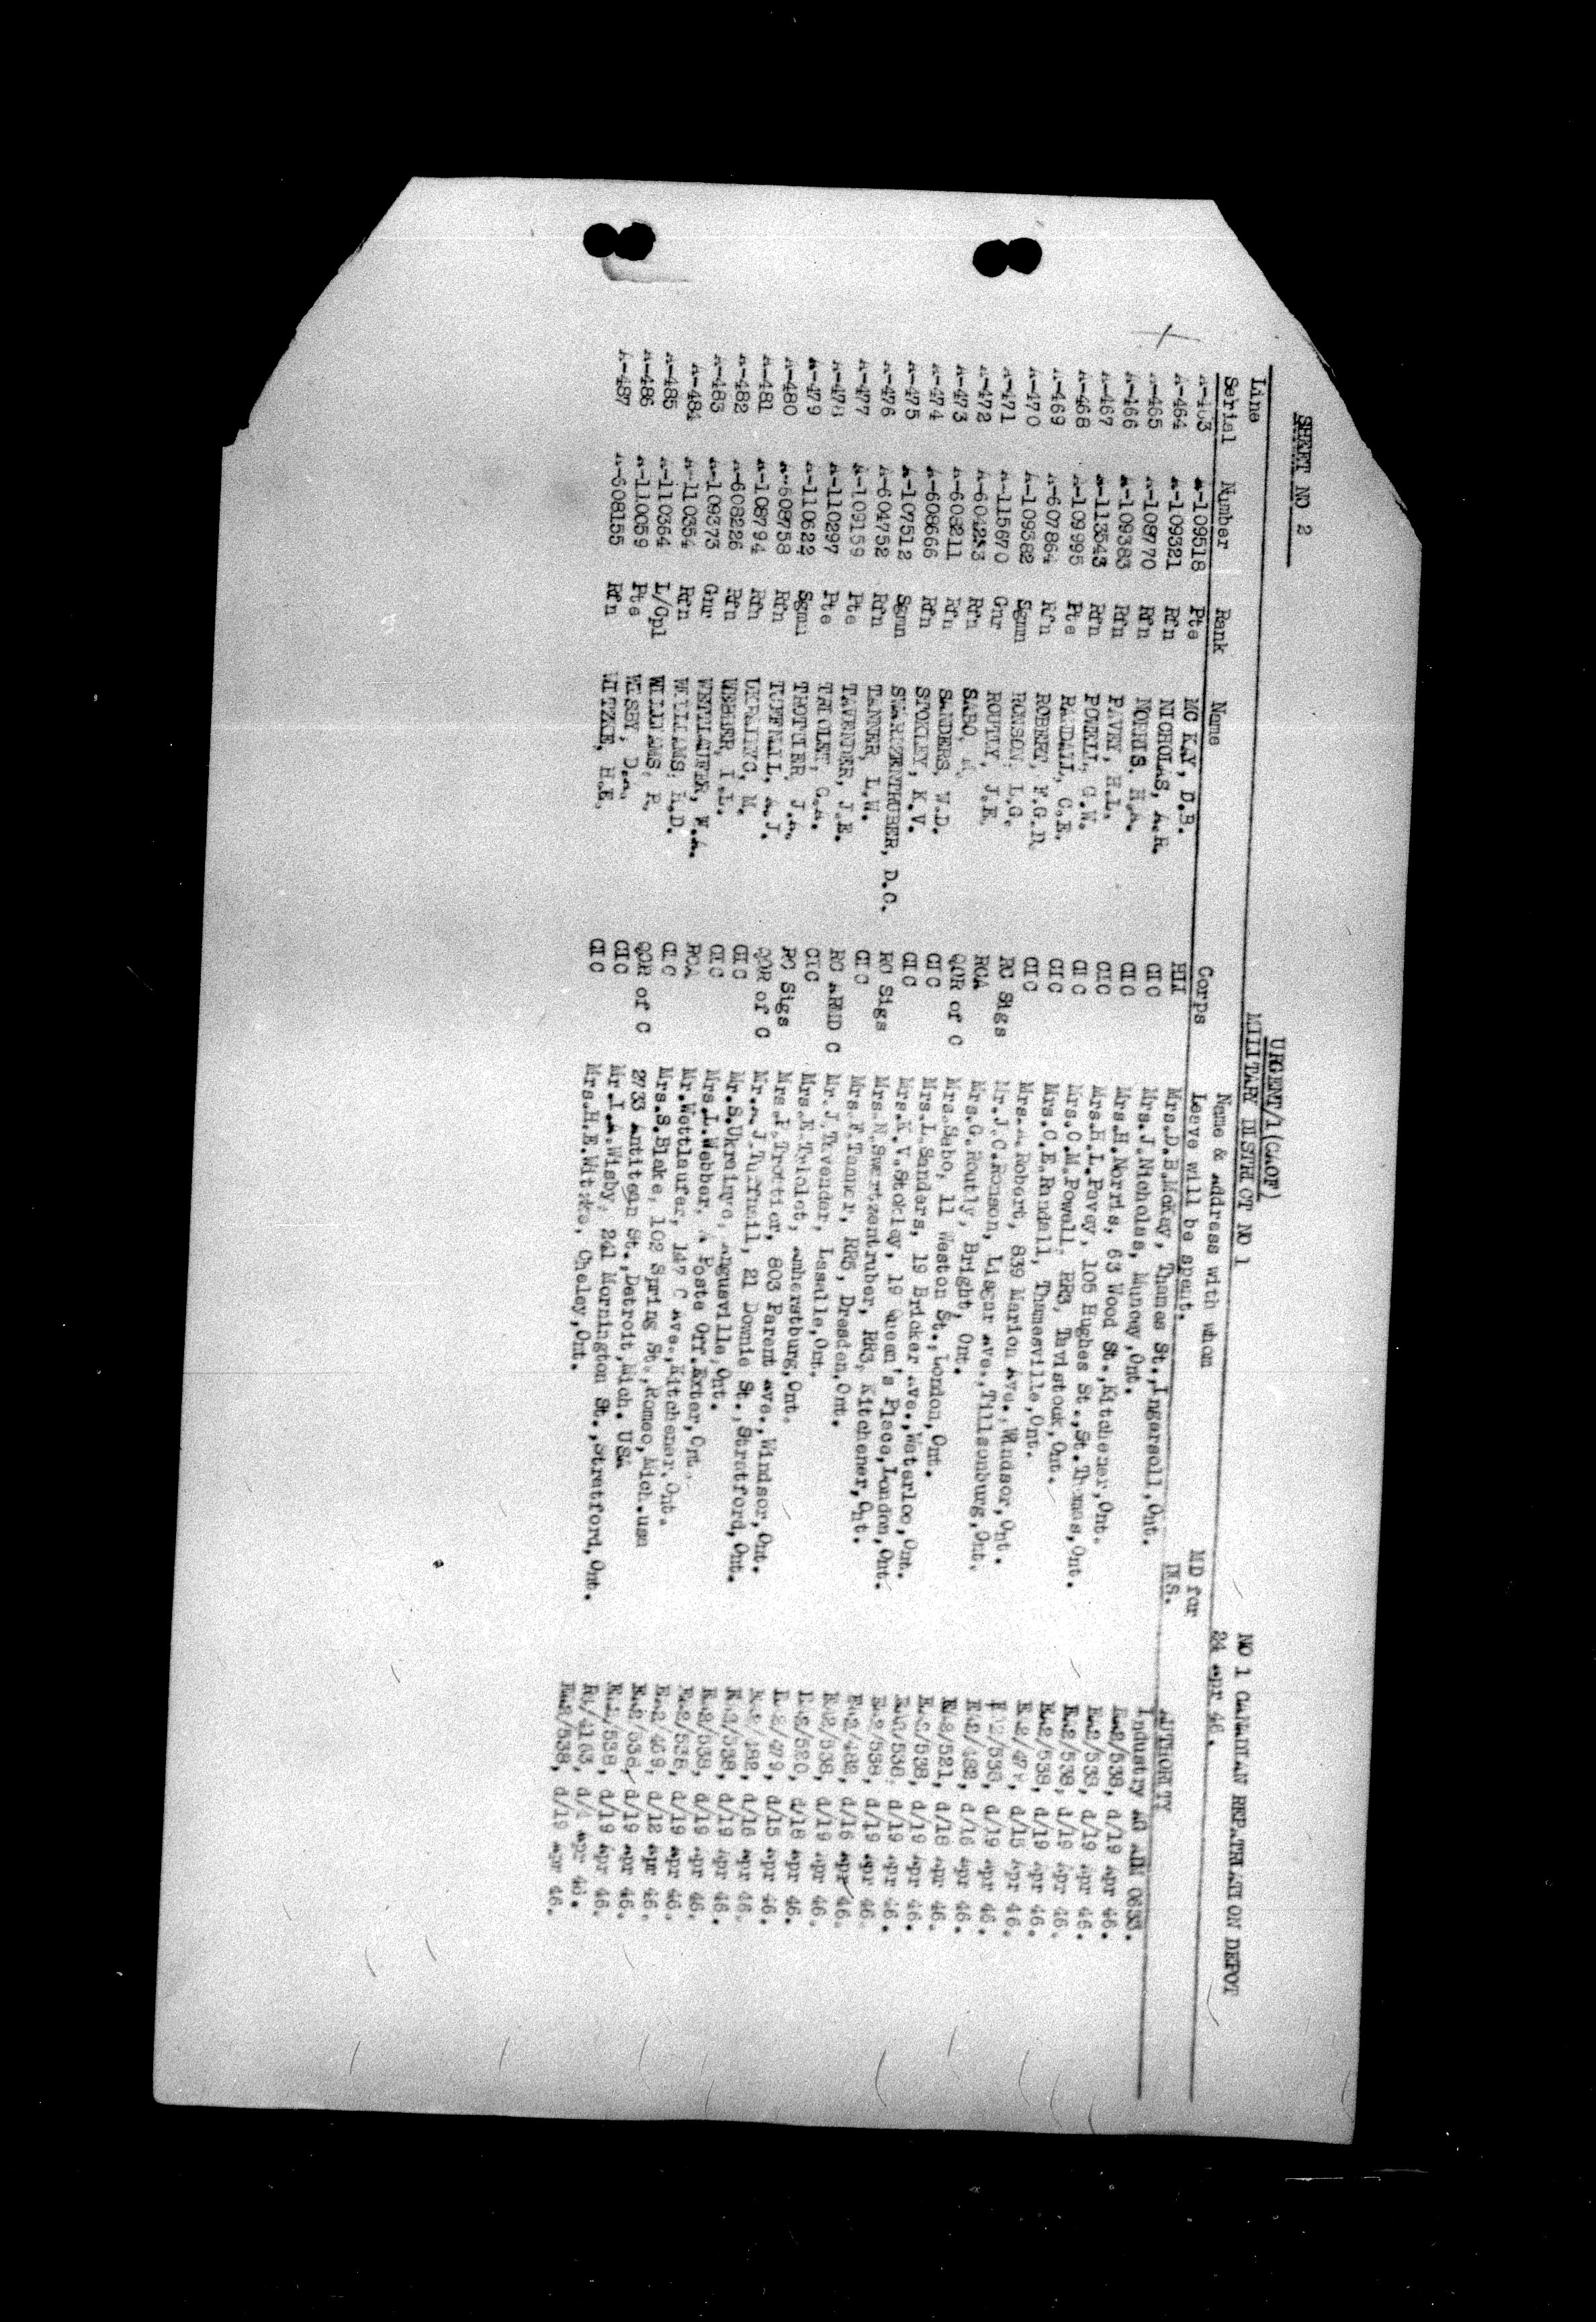 SHEET NO 2
URGENT/1(CAOF)
MILITARY DISTRICT NO 1
NO 1 CANADIAN REPATRIATION DEPOT
24 Apr 46.
Line Serial Number Rank Name Corps Name & Address with whom Leave will be spent. MD for INS. AUTHORITY
A-463 A-109518 Pte MC KAY, D.B. HLI Mrs.D.B.McKay, Thames St.,Ingersoll,Ont. Industry
A-464 A-109321 Rfn NICHOLAS, A.R. CIC Mrs.J.Nicholas, Muncey,Ont. RA2/538, d/19 Apr 46.
A-465 A-108770 Rfn NORRIS, H.A. CIC Mrs.H.Norris, 63 Wood St.,Kitchener,Ont. RA2/538, d/19 Apr 46.
A-466 A-109383 Rfn PAVEY, H.L. CIC Mrs.H.L.Pavey, 105 Hughes St.,St.Thomas,Ont. RA2/538, d/19 Apr 46.
A-467 A-113543 Rfn POWELL, C.W. CIC Mrs.C.M.Powell, RR3, Tavistock,Ont. RA2/538, d/19 Apr 46.
A-468 A-109995 Pte RANDALL, C.E. CIC Mrs.C.E.Randall, Thamesville,Ont.
A-469 A-607864 Rfn ROBERT, F.G.R CIC Mrs.A.Robert, 839 Marion Ave.,Windsor,Ont.
A-470 A-109382 Sgmn RONSON, L.G. RC Sigs Mr.J.C.Ronson, Lisgar Ave.,Tillsonburg,Ont.
A-471 A-115670 Gnr ROUTLY, J.E. RCA Mrs.G.Routly, Bright, Ont.
A-472 A-604253 Rfn SABO, QOR of C Mrs.Sabo, 11 Weston St.,London,Ont.
A-473 A-608211 Rfn SANDERS, W.D. CIC Mrs.L.Sanders, 19 Bricker Ave.,Waterloo,Ont.
A-474 A-608666 Rfn STOKLEY, K.V. CIC Mrs.K.V.Stokley, 19 Queen's Place,London,Ont.
A-475 A-107512 Sgmn SWARTZENTRUBER, D.C. RC Sigs Mrs.N.Swartzentruber, RR3, Kitchener,Ont.
A-476 A-604752 Rfn TANNER, L.W. CIC Mrs.F.Tanner, RR5, Dresden,Ont.
A-477 A-109159 Pte TAVENDER, J.E. RC ARMD C Mr.J.Tavender, Lasalle,Ont.
A-478 A-110297 Pte TRIOLET, G.A. CIC Mrs.E.Triolet, Amherstburg,Ont.
A-479 A-110622 Sgmn TROTTIER, J.A. RC Sigs Mrs.P.Trottier, 803 Parent Ave.,Windsor,Ont.
A-480 A-608758 Rfn TUFFNAIL, A.J. QOR of C Mr.A.J.Tuffnail, 21 Downie St.,Stratford,Ont.
A-481 A-108794 Rfn UKRAINYC, M. CIC Mr.S.Ukrainyc, Angusville,Ont.
A-482 A-608226 Rfn WEBBER, I.L. CIC Mrs.L.Webber, A Poste Off.Exter,Ont.
A-483 A-109373 Gnr WETTLAUFER, W.A. RCA Mr.Wettlaufer, 147 C Ave.,Kitchener,Ont.
A-484 A-110354 Rfn WILLIAMS, R.D. CIC Mrs.S.Blake, 102 Spring St.,Romeo,Mich.USA
A-485 A-110364 L/Cpl WILLIAMS, R. QOR of C 2733 Antitean St.,Detroit,Mich. USA
A-486 A-110059 Pte WISBY, D.A. CIC Mr.I.A.Wisby, 241 Mornington St.,Stratford,Ont. d/4 Apr 46.
A-487 A-608155 Rfn WITZKE, H.E. CIC Mrs.H.E.Witzke, Cheley,Ont. RA2/538, d/19 Apr 46.